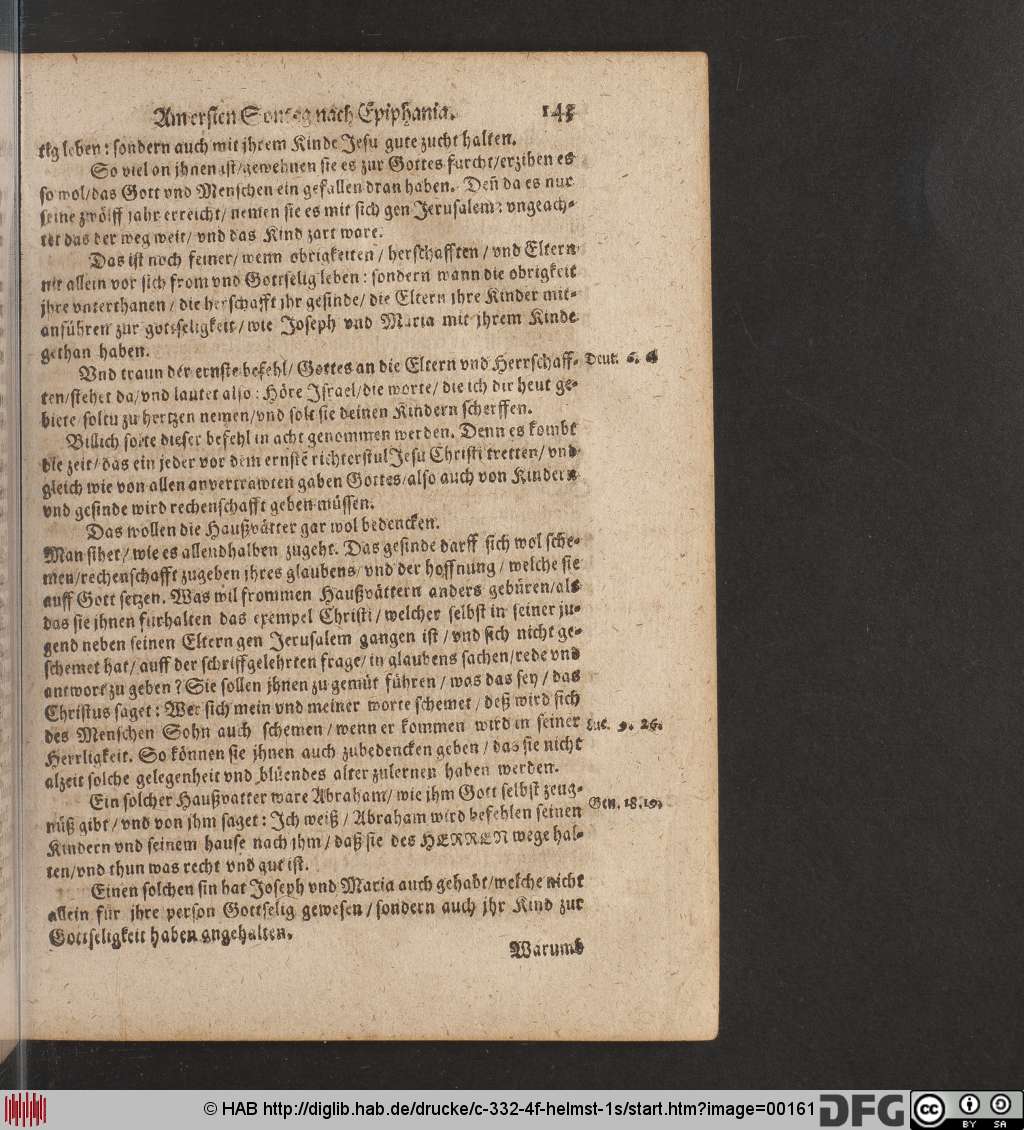 Am ersten Sontag nach Epiphania. 143
tig leben: sondern auch mit jhrem Kinde Jesu gute zucht halten.
So viel an jhnen ist/gewehnen sie es zur Gottes furcht/erziben es
so wol/das Gott vnd Menschen ein gefallen dran haben. Deñ da es nur
seine zwölff jahr erreicht/ nemen sie es mit sich gen Jerusalem: vngeach-
tet das der weg weit/ vnd das Kind zart ware.
Das ist noch feiner/ wenn obrigkeiten / herschafften / vnd Eltern
nit allein vor sich from vnd Gottselig leben: sondern wann die obrigkeit
jhre vnterthanen / die herschafft jhr gesinde/ die Eltern jhre Kinder mit-
anführen zur gottseligkeit / wie Joseph vnd Maria mit jhrem Kinde
gethan haben.
Vnd traun der ernste befehl/ Gottes an die Eltern vnd Herrschaff-
Deut. 6. 4
ten/stehet da/vnd lautet also: Höre Jsrael/die worte/ die ich dir heut ge-
biete/soltu zu hertzen nemen/vnd solt sie deinen Kindern scherffen.
Billich solte dieser befehl in acht genommen werden. Denn es kombt
die zeit/ das ein jeder vor dem ernstẽ richterstul Jesu Christi tretten/ vnd
gleich wie von allen anvertrawten gaben Gottes/also auch von Kindern
vnd gesinde wird rechenschafft geben müssen.
Das wollen die Haußvätter gar wol bedencken.
Man sihet/ wie es allendhalben zugeht. Das gesinde darff sich wol sche-
men/rechenschafft zugeben jhres glaubens/ vnd der hoffnung / welche sie
auff Gott setzen. Was wil frommen Haußvättern anders gebüren/als
das sie jhnen fürhalten das exempel Christi / welcher selbst in seiner ju-
gend neben seinen Eltern gen Jerusalem gangen ist / vnd sich nicht ge-
schemet hat/ auff der schriffgelehrten frage/ in glaubens sachen/rede vnd
antwort zu geben? Sie sollen jhnen zu gemüt führen / was das sey / das
Christus saget: Wer sich mein vnd meiner worte schemet / deß wird sich
des Menschen Sohn auch schemen / wenn er kommen wird in seiner
Luc. 9. 26.
Herrligkeit. So können sie jhnen auch zubedencken geben / das sie nicht
alzeit solche gelegenheit vnd blüendes alter zulernen haben werden.
Ein solcher Haußvatter ware Abraham/ wie jhm Gott selbst zeug-
Gen. 18. 19.
nüß gibt / vnd von jhm saget: Jch weiß / Abraham wird befehlen seinen
Kindern vnd seinem hause nach jhm / daß sie des HERREN wege hal-
ten/vnd thun was recht vnd gut ist.
Einen solchen sin hat Joseph vnd Maria auch gehabt/welche nicht
allein für jhre person Gottselig gewesen / sondern auch jhr Kind zur
Gottseligkeit haben angehalten.
Warumb
© HAB http://diglib.hab.de/drucke/c-332-4f-helmst-1s/start.htm?image=00161
DFG
cc BY SA